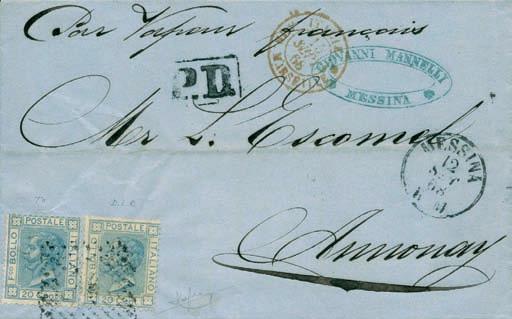 Par Vapeur français
GIOVANNI MANNELLI
MESSINA
P.D.
Mr L. Escomel
MESSINA
12
Annonay
POSTALE
ITALIANO
FCO BOLLO
20
POSTALE
ITALIANO
20